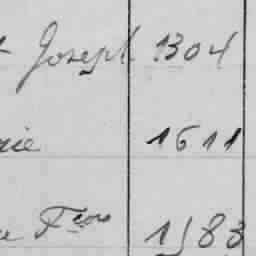 Joseph 1304
rie 1611
e Fcois 1583